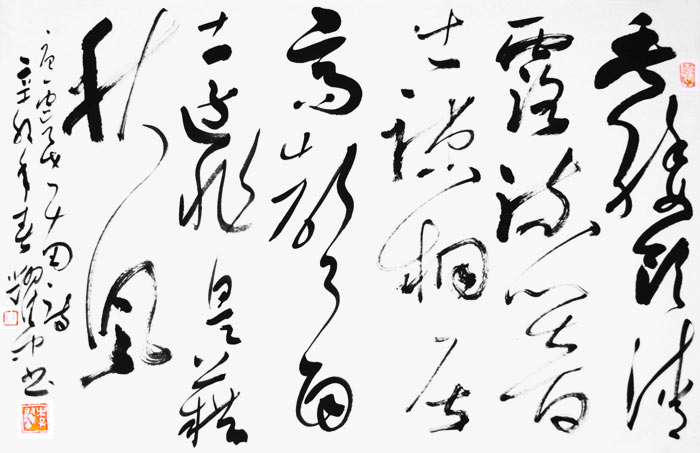 垂緌飲清
露流響
出疏桐居
高聲
自遠非是藉
秋風
唐虞世南詩
辛卯年春書